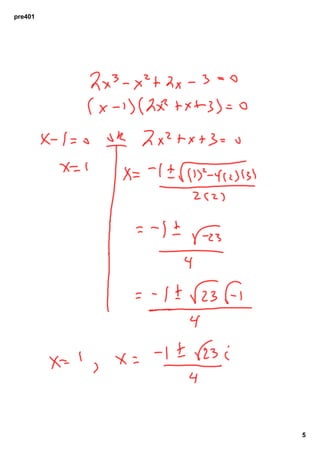 pre401
2x³ - x² + 2x - 3 = 0
(x - 1)(2x² + x + 3) = 0
x - 1 = 0 or 2x² + x + 3 = 0
x = 1
x = -1 ± √(1)² - 4(2)(3) / 2(2)
= -1 ± √-23 / 4
= -1 ± √23 √-1 / 4
x = 1, x = -1 ± √23 i / 4
5